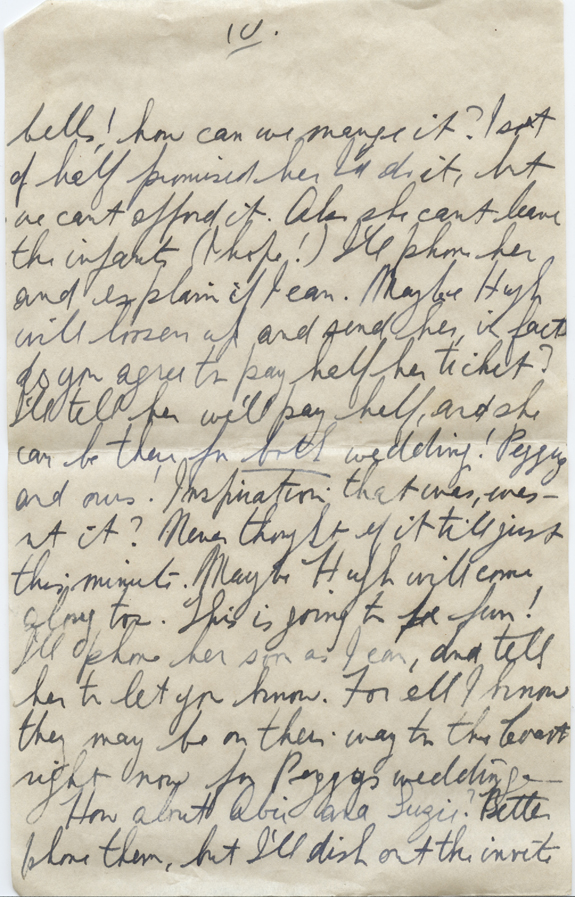 10.
bells! how can we mange it? I sort
of half promised her I'd do it, but
we cant afford it. Also she cant leave
the infant (I hope!) I'll phone her
and explain if I can. Maybe Hugh
will loosen up and send her, in fact
do you agree to pay half her ticket?
I'll tell her we'll pay half, and she
can be there for both wedding! Peggys
and ours! Inspiration that was, was-
nt it? Never thought of it till just
this minute. Maybe Hugh will come
along too. This is going to be fun!
I'll phone her soon as I can, and tell
her to let you know. For all I know
they may be on their way to the Coast
right now for Peggys wedding—
How about Abie and Suzie? Better
phone them, but I'll dish out the invite